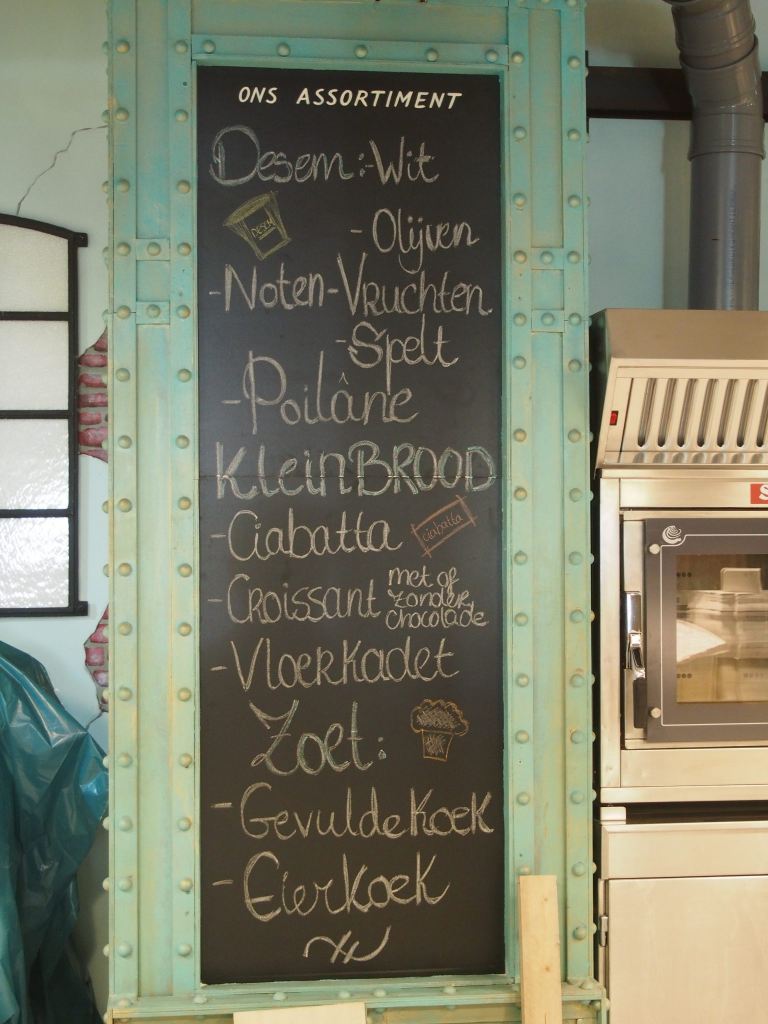 ONS ASSORTIMENT
Desem:-Wit
DESEM
- Olijven
-Noten-Vruchten
-Spelt
-Poilâne
KleinBROOD
-Ciabatta
ciabatta
-Croissant met of
zonder
chocolade
-Vloerkadet
Zoet:
- Gevuldekoek
- Eierkoek